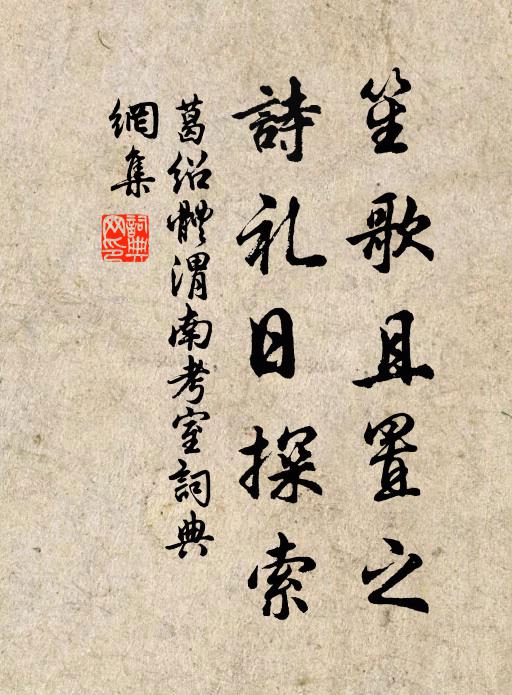 笙歌且置之
詩礼日探索
葛绍體渭南考室詞典
網集
詞典网印